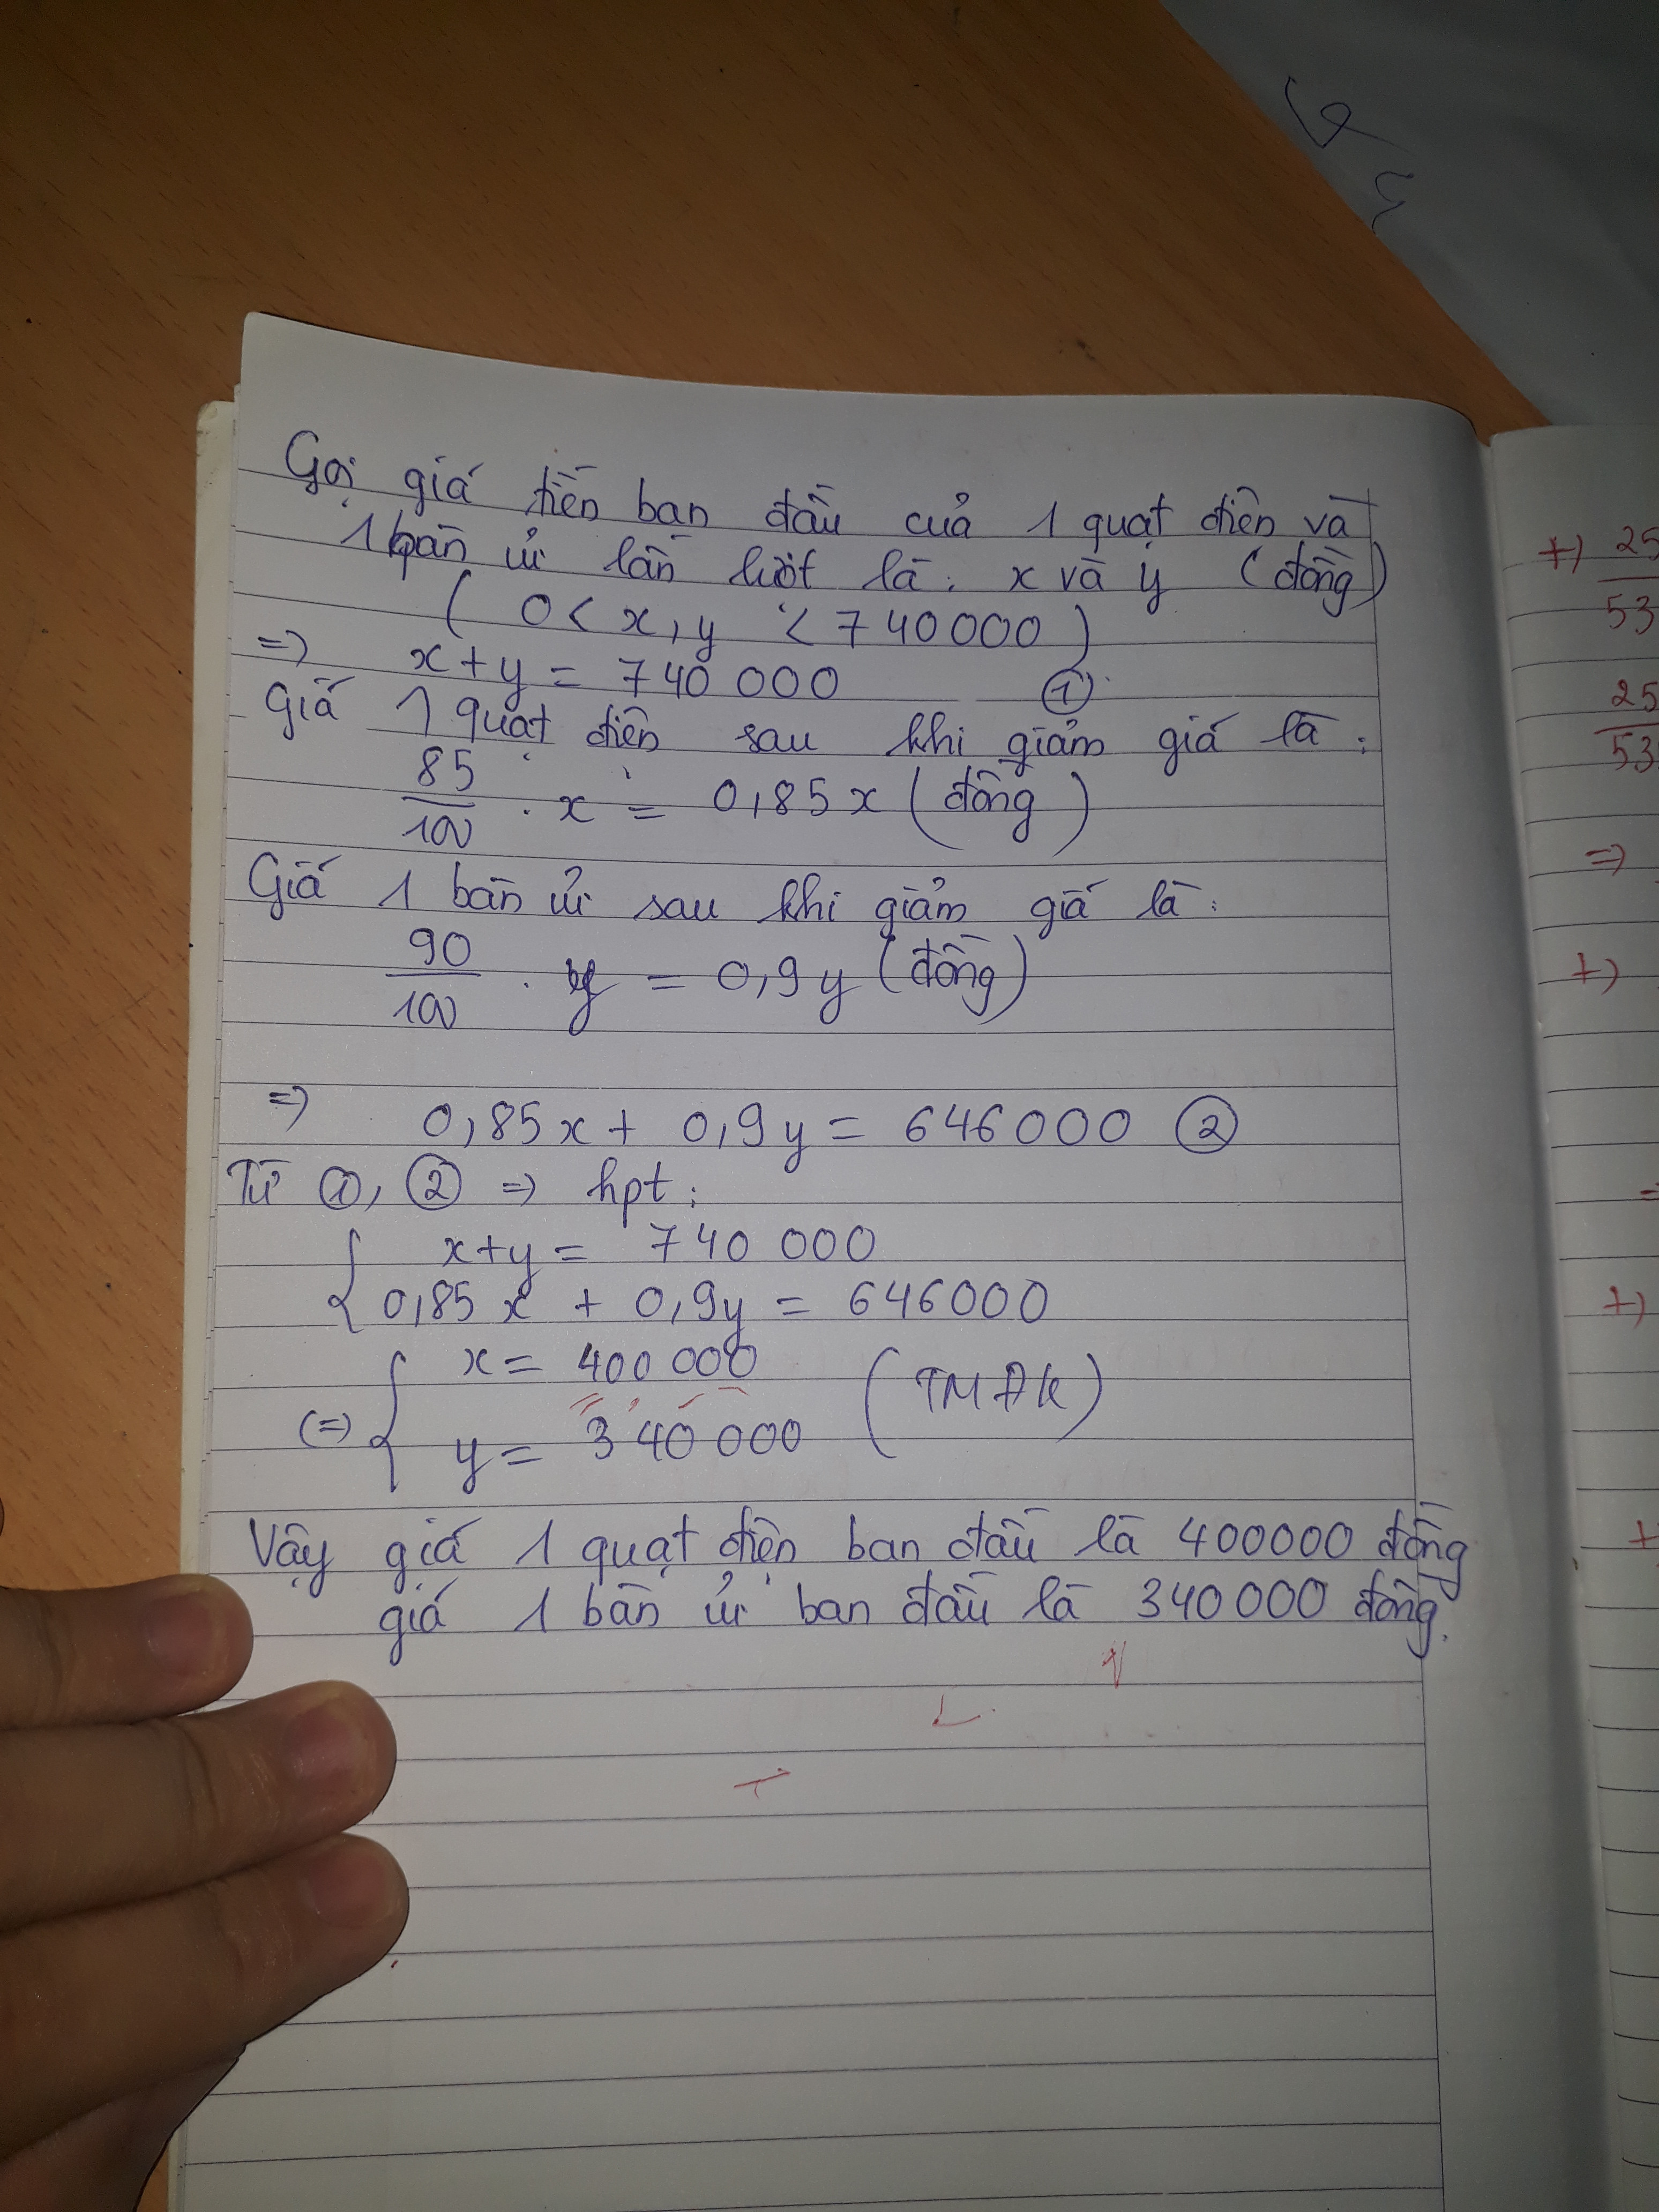 Gọi giá tiền ban đầu của 1 quạt điện và
1 bàn ủi lần lượt là: x và y (đồng)
( 0 < x, y < 740000 )
=> x + y = 740 000 ①
Giá 1 quạt điện sau khi giảm giá là:
85/100 . x = 0,85x (đồng)
Giá 1 bàn ủi sau khi giảm giá là:
90/100 . y = 0,9y (đồng)
=> 0,85x + 0,9y = 646000 ②
Từ ①, ② => hpt:
{ x+y = 740 000
0,85x + 0,9y = 646000
(=>) { x = 400 000
y = 340 000 (TMĐK)
Vậy giá 1 quạt điện ban đầu là 400000 đồng
giá 1 bàn ủi ban đầu là 340000 đồng.
+) 25
53
25
53
=>
+)
+)